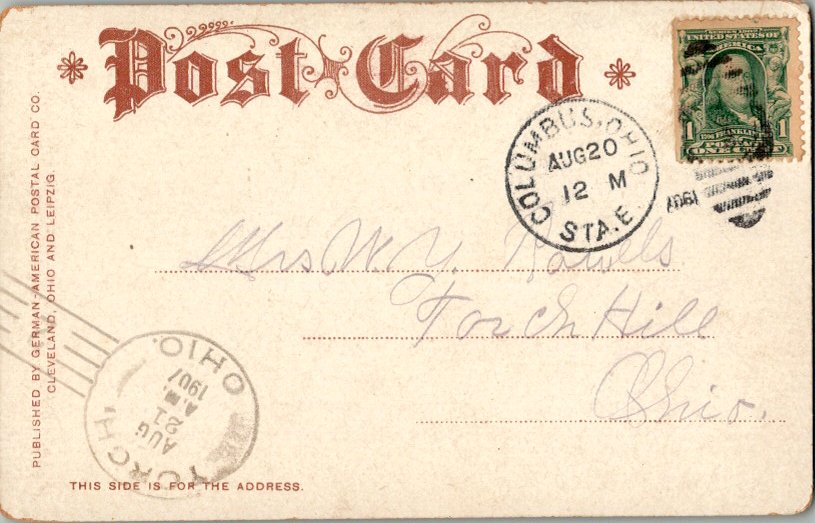 Post Card
SERIES 1902
UNITED STATES OF
AMERICA
1 FRANKLIN 1
POSTAGE
ONE CENT
COLUMBUS, OHIO
AUG 20
12 M
STA. E.
1907
Mrs W. Y. Rowells
Torch Hill
Ohio.
TORCH, OHIO.
AUG
21
A.M.
1907
PUBLISHED BY GERMAN-AMERICAN POSTAL CARD CO.
CLEVELAND, OHIO AND LEIPZIG.
THIS SIDE IS FOR THE ADDRESS.